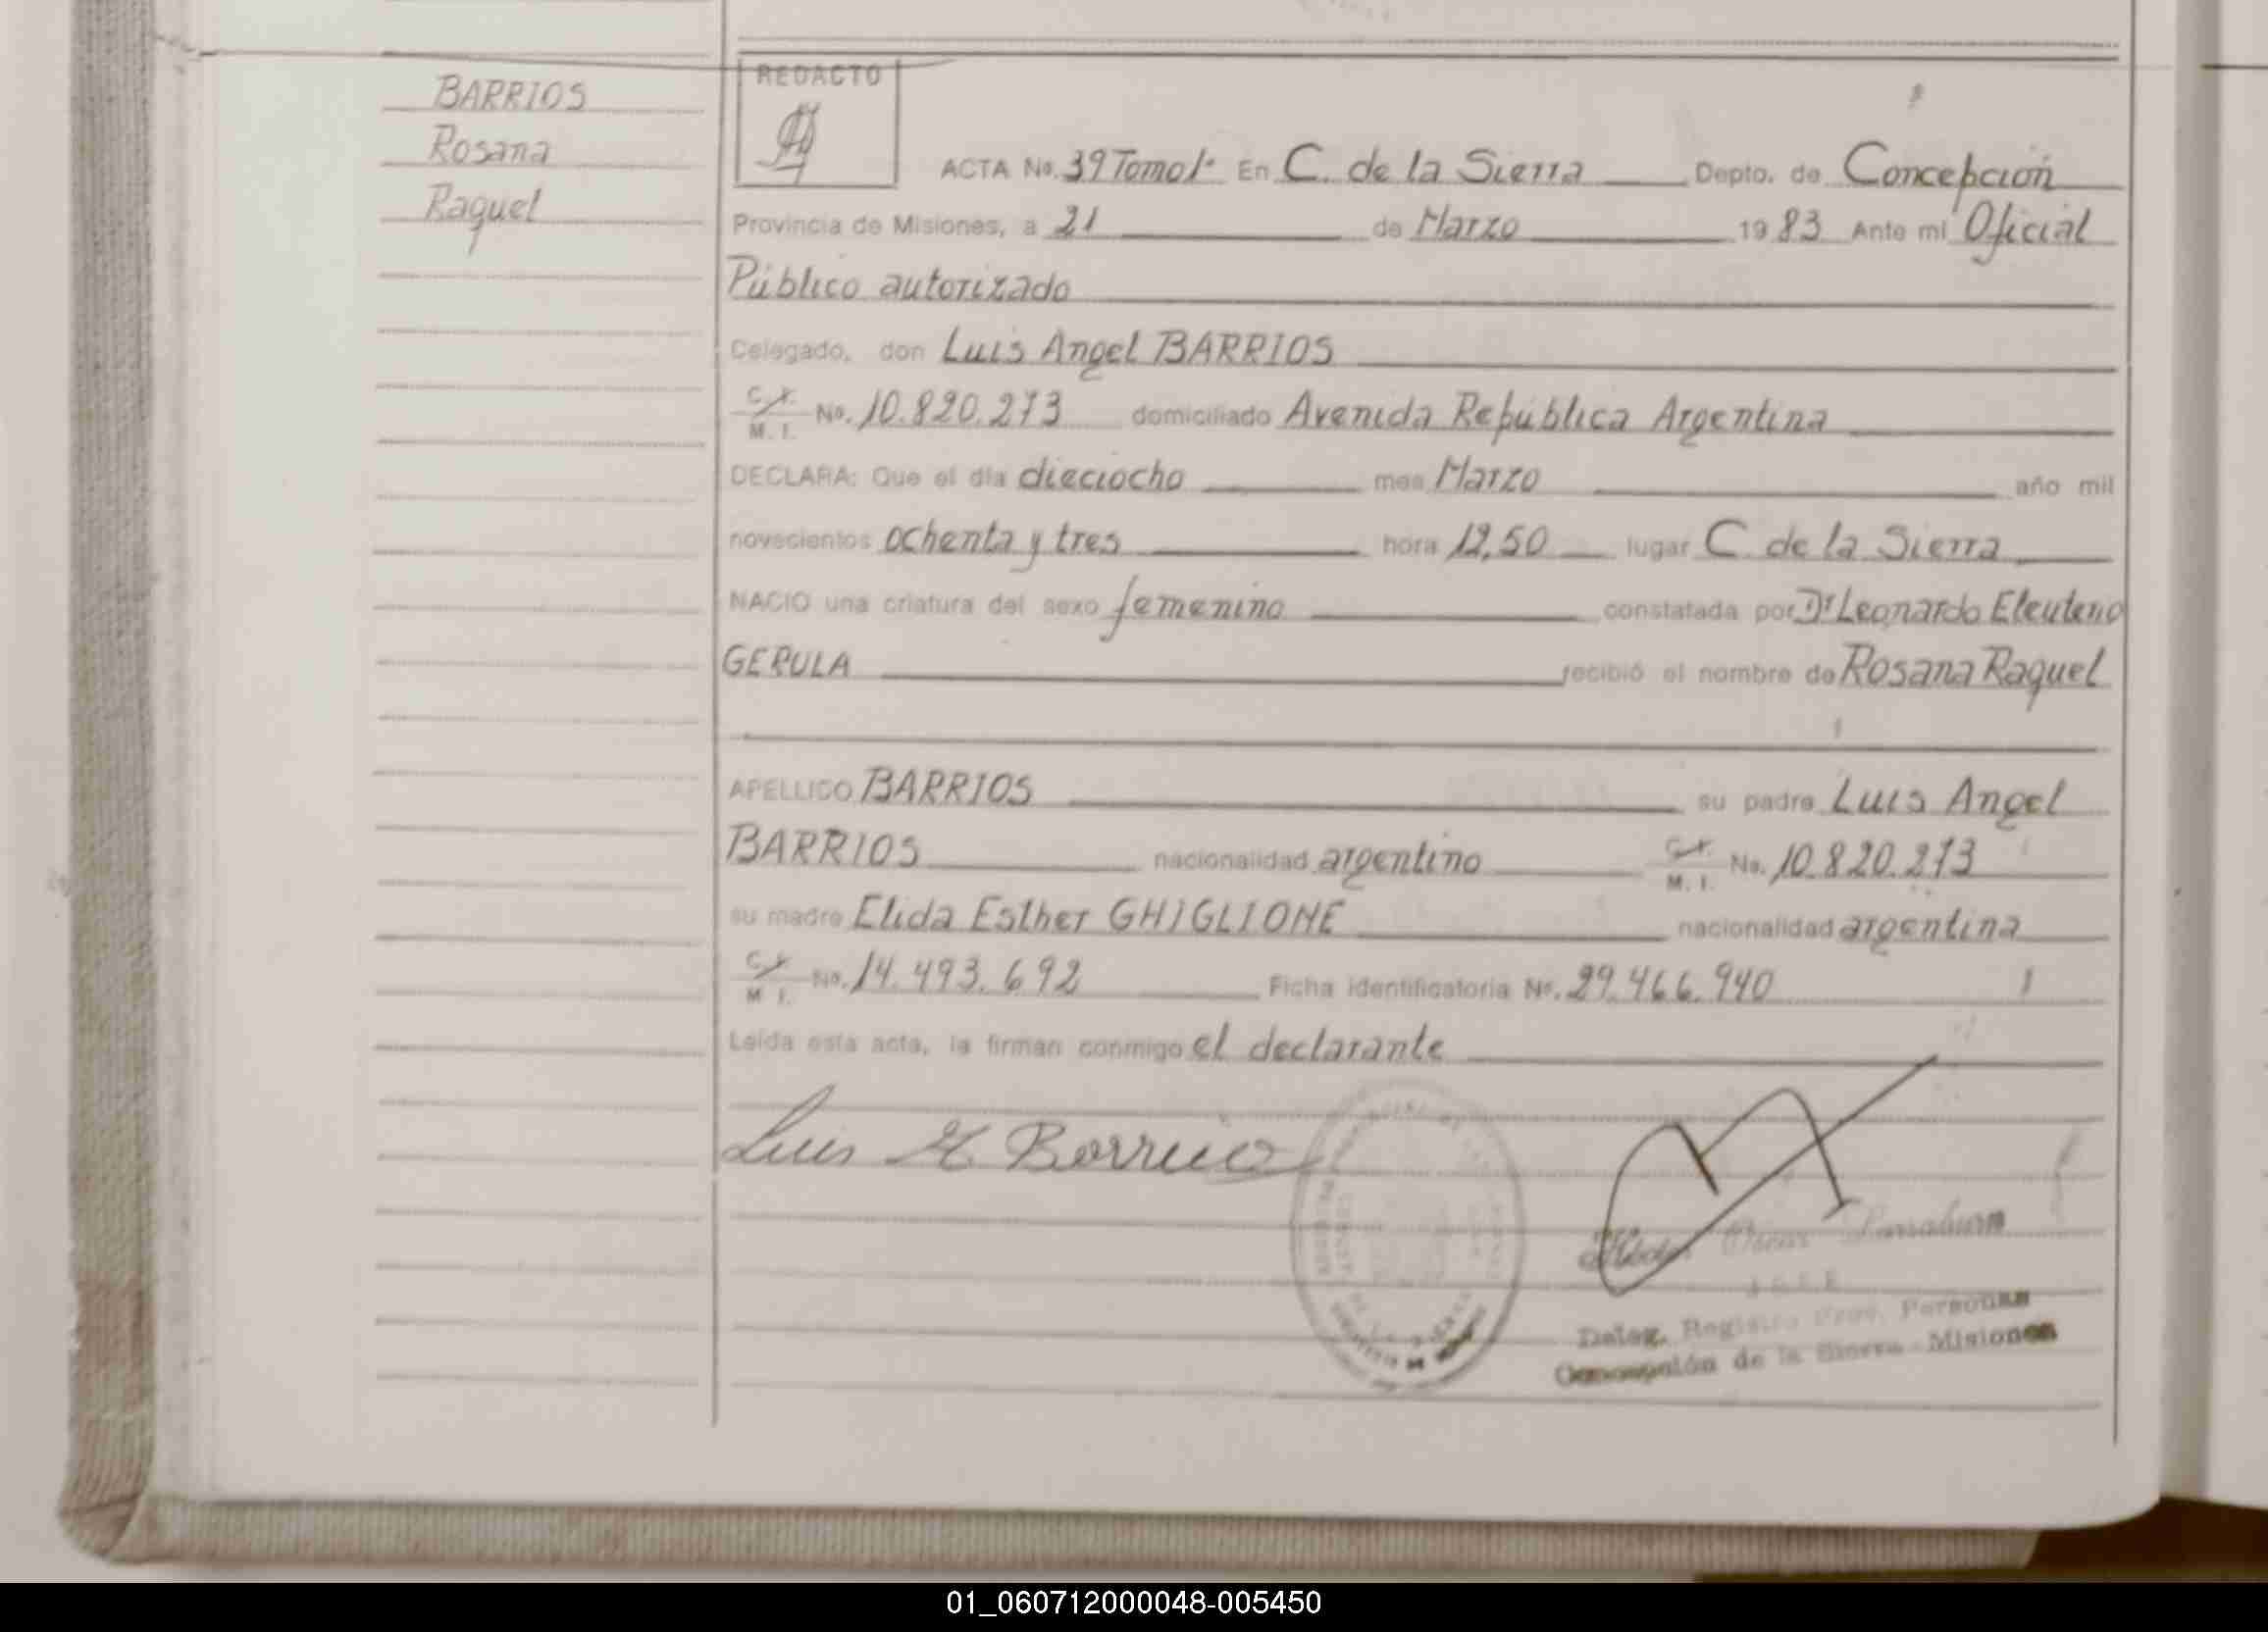 BARRIOS
Rosana
Raquel
REDACTO
ACTA No. 39 Tomo 1º En C. de la Sierra Depto. de Concepción
Provincia de Misiones, a 21 de Marzo 1983 Ante mi Oficial
Público autorizado
Delegado, don Luis Angel BARRIOS
C. I. M. I. No. 10.820.273 domiciliado Avenida República Argentina
DECLARA: Que el día dieciocho mes Marzo año mil
novecientos ochenta y tres hora 12,50 lugar C. de la Sierra
NACIO una criatura del sexo femenino constatada por Dr Leonardo Eleuterio
GERULA recibió el nombre de Rosana Raquel
APELLIDO BARRIOS su padre Luis Angel
BARRIOS nacionalidad argentino C. I. M. I. No. 10.820.273
su madre Elida Esther GHIGLIONE nacionalidad argentina
C. I. M. I. No. 14.493.692 Ficha identificatoria No. 29.466.940
Leída esta acta, la firman conmigo el declarante
Luis A Barrios
Deleg. Registro Prov. Personas
Concepción de la Sierra - Misiones
01_060712000048-005450